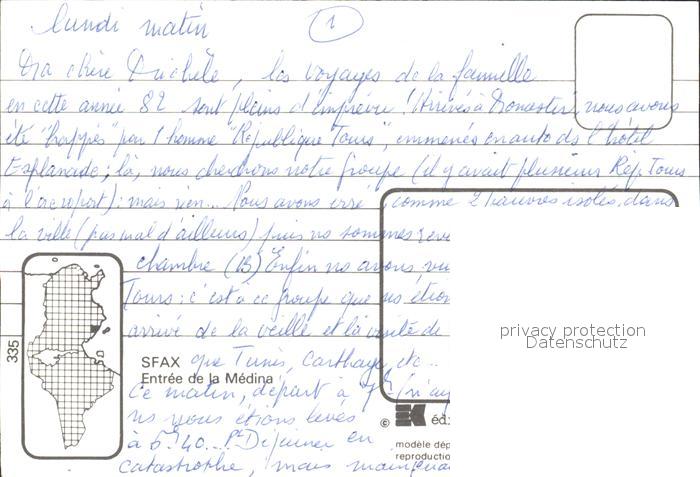 lundi matin ①
Ma chère Michèle, les voyages de la famille
en cette année 82 sont pleins d'imprévu ! Arrivés à Monastir, nous avons
été "happés" par 1 homme "République Tours", emmenés en auto ds l'hôtel
Esplanade ; là, nous cherchons notre groupe (il y avait plusieurs Rép. Tours
à l'aéroport) : mais rien... Nous avons erré, comme 2 pauvres isolés, dans
la ville (pas mal d'ailleurs) puis ns sommes
chambre (13) Enfin ns avons vu
Tours : c'est à ce groupe que ns étions
arrivé de la veille et la visite de
SFAX que Tunis, Carthage, etc..
Entrée de la Médina
Ce matin, départ à 7h
ns nous étions levés
à 5h40... Pt Déjeuner en
catastrophe, mais maintenant
335
© EK éd
modèle dép
reproductio
privacy protection
Datenschutz